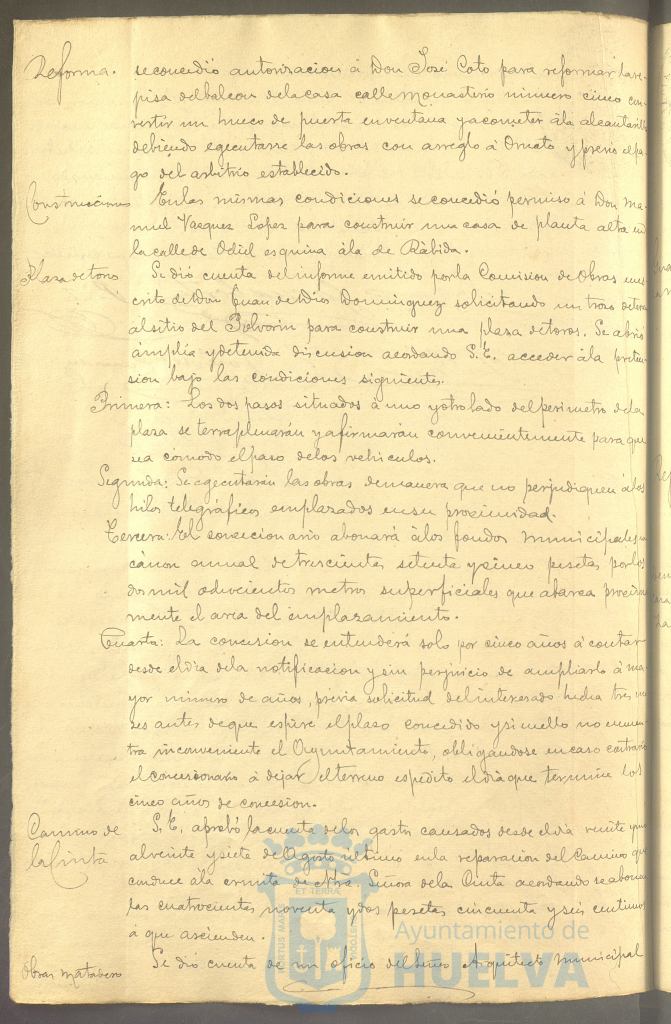 Reforma. se concedió autorizacion á Don José Coto para reformar la re-
pisa del balcon de la casa calle Monasterio número cinco con-
vertir un hueco de puerta en ventana y acometer á la alcantarilla
debiendo egecutarse las obras con arreglo á Ornato y previo el pa-
go del arbitrio establecido.
Construcciones En las mismas condiciones se concedió permiso á Don Ma-
nuel Vazquez Lopez para construir una casa de planta alta en
la calle de Odiel esquina á la de Rábida.
Plaza de toros Se dió cuenta del informe emitido por la Comision de Obras en es-
crito de Don Juan de Dios Dominguez solicitando un trozo de terreno
al sitio del Polvorin para construir una plaza de toros. Se abrió
ámplia y detenida discusion acordando S.E. acceder á la preten-
sion bajo las condiciones siguientes.
Primera: Los dos pasos situados á uno y otro lado del perimetro de la
plaza se terraplenarán y afirmarán convenientemente para que
sea cómodo el paso de los vehiculos.
Segunda: Se egecutarán las obras de manera que no perjudiquen á los
hilos telegráficos emplazados en su proximidad.
Tercera: El concecionario abonará á los fondos municipales un
cánon annual de trescientas setenta y cinco pesetas por los
dos mil ochocientos metros superficiales que abarca proxima-
mente el area del emplazamiento.
Cuarta: La concesion se entenderá solo por cinco años á contar
desde el dia de la notificacion y sin perjuicio de ampliarlo á ma-
yor número de años, previa solicitud del interesado hecha tres me-
ses antes de que espire el plazo concedido y si en ello no encuen-
tra inconveniente el Ayuntamiento, obligándose en caso contrario
el concesionario á dejar el terreno espédito el dia que termine los
cinco años de concesion.
Camino de la Cinta S.E. aprobó la cuenta de los gastos causados desde el dia veinte y uno
al veinte y siete de Agosto último en la reparacion del Camino que
conduce á la ermita de Ntra. Señora de la Cinta acordando se abonen
las cuatrocientas noventa y dos pesetas cincuenta y seis centimos
á que ascienden.
Obras matadero Se dió cuenta de un oficio del Señor Arquitecto Municipal
PORTUS MARIS ET TERRÆ CUSTODIA
Ayuntamiento de
HUELVA